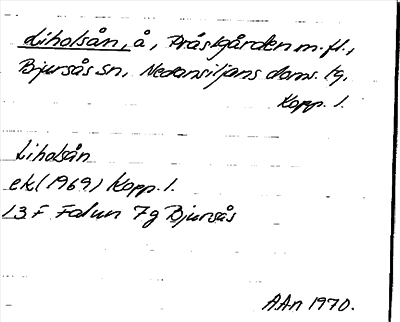 Liholsån, å, Prästgården m.fl.,
Bjursås sn, Nedansiljans doms. lg,
Kopp. l.
Liholsån
ek (1969) Kopp. l.
13 F Falun 7g Bjursås
AAn 1970.